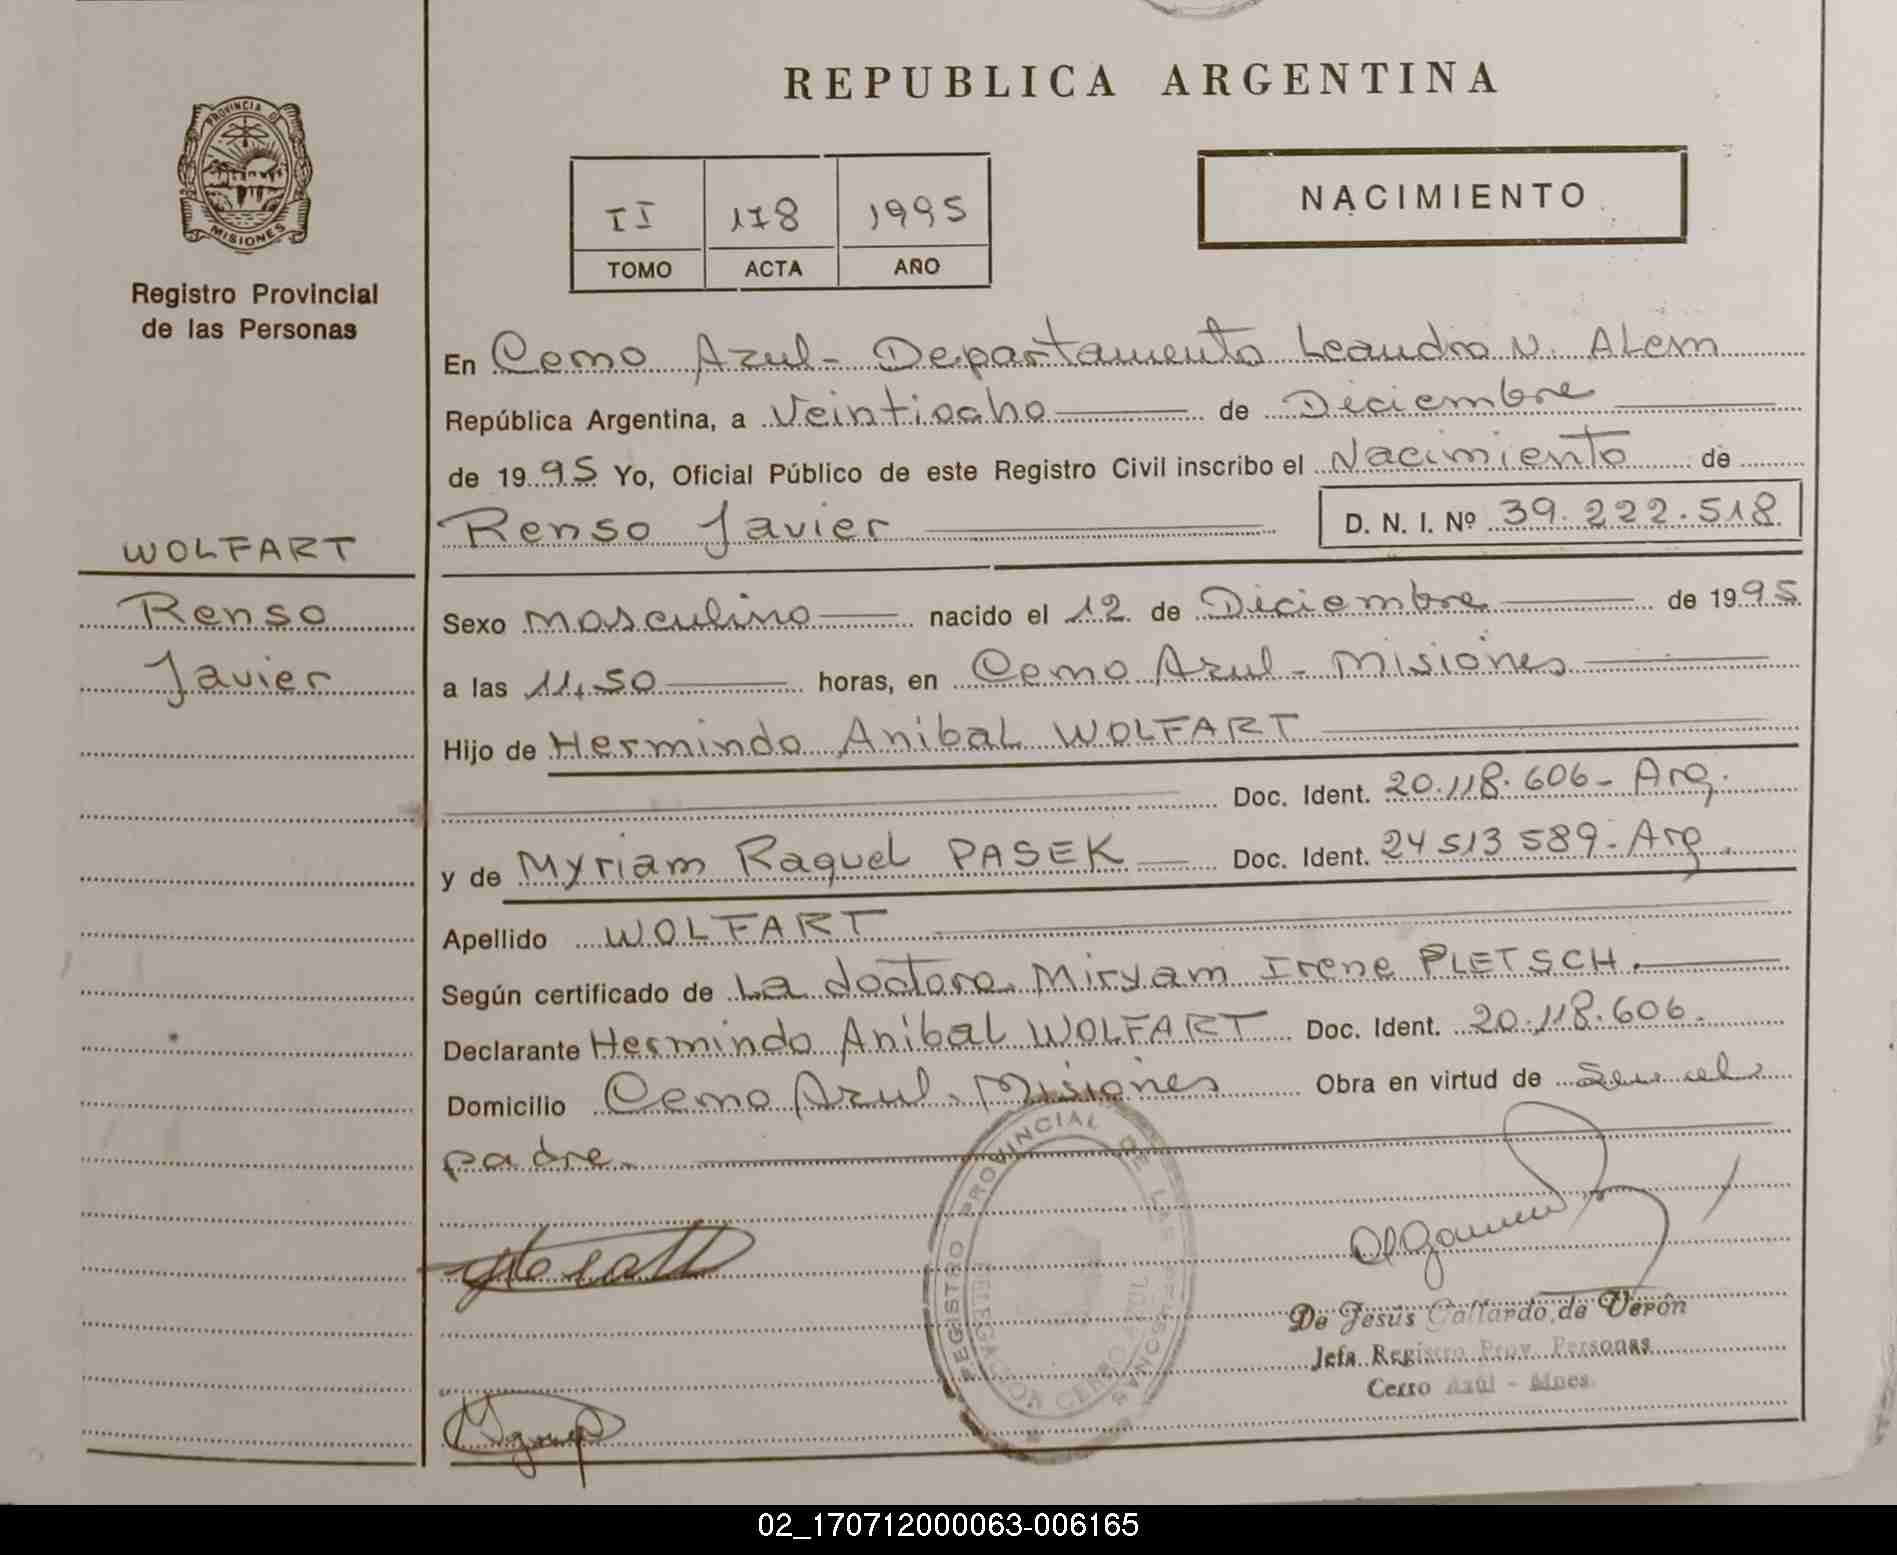 PROVINCIA DE
MISIONES
Registro Provincial
de las Personas
WOLFART
Renso
Javier
REPUBLICA ARGENTINA
II 178 1995
TOMO ACTA AÑO
NACIMIENTO
En Cerro Azul - Departamento Leandro N. Alem
República Argentina, a Veintiocho de Diciembre
de 1995 Yo, Oficial Público de este Registro Civil inscribo el Nacimiento de
Renso Javier D. N. I. Nº 39.222.518
Sexo masculino nacido el 12 de Diciembre de 1995
a las 11,50 horas, en Cerro Azul - Misiones
Hijo de Hermindo Anibal WOLFART
Doc. Ident. 20.118.606 - Arg.
y de Myriam Raquel PASEK Doc. Ident. 24 513 589 - Arg.
Apellido WOLFART
Según certificado de La doctora Miryam Irene PLETSCH.
Declarante Hermindo Anibal WOLFART Doc. Ident. 20.118.606.
Domicilio Cerro Azul - Misiones Obra en virtud de
padre.
REGISTRO PROVINCIAL DE LAS PERSONAS
DELEGACION CERRO AZUL
De Jesús Gallardo de Verón
Jefa Registro Prov. Personas
Cerro Azul - Mnes.
02_170712000063-006165